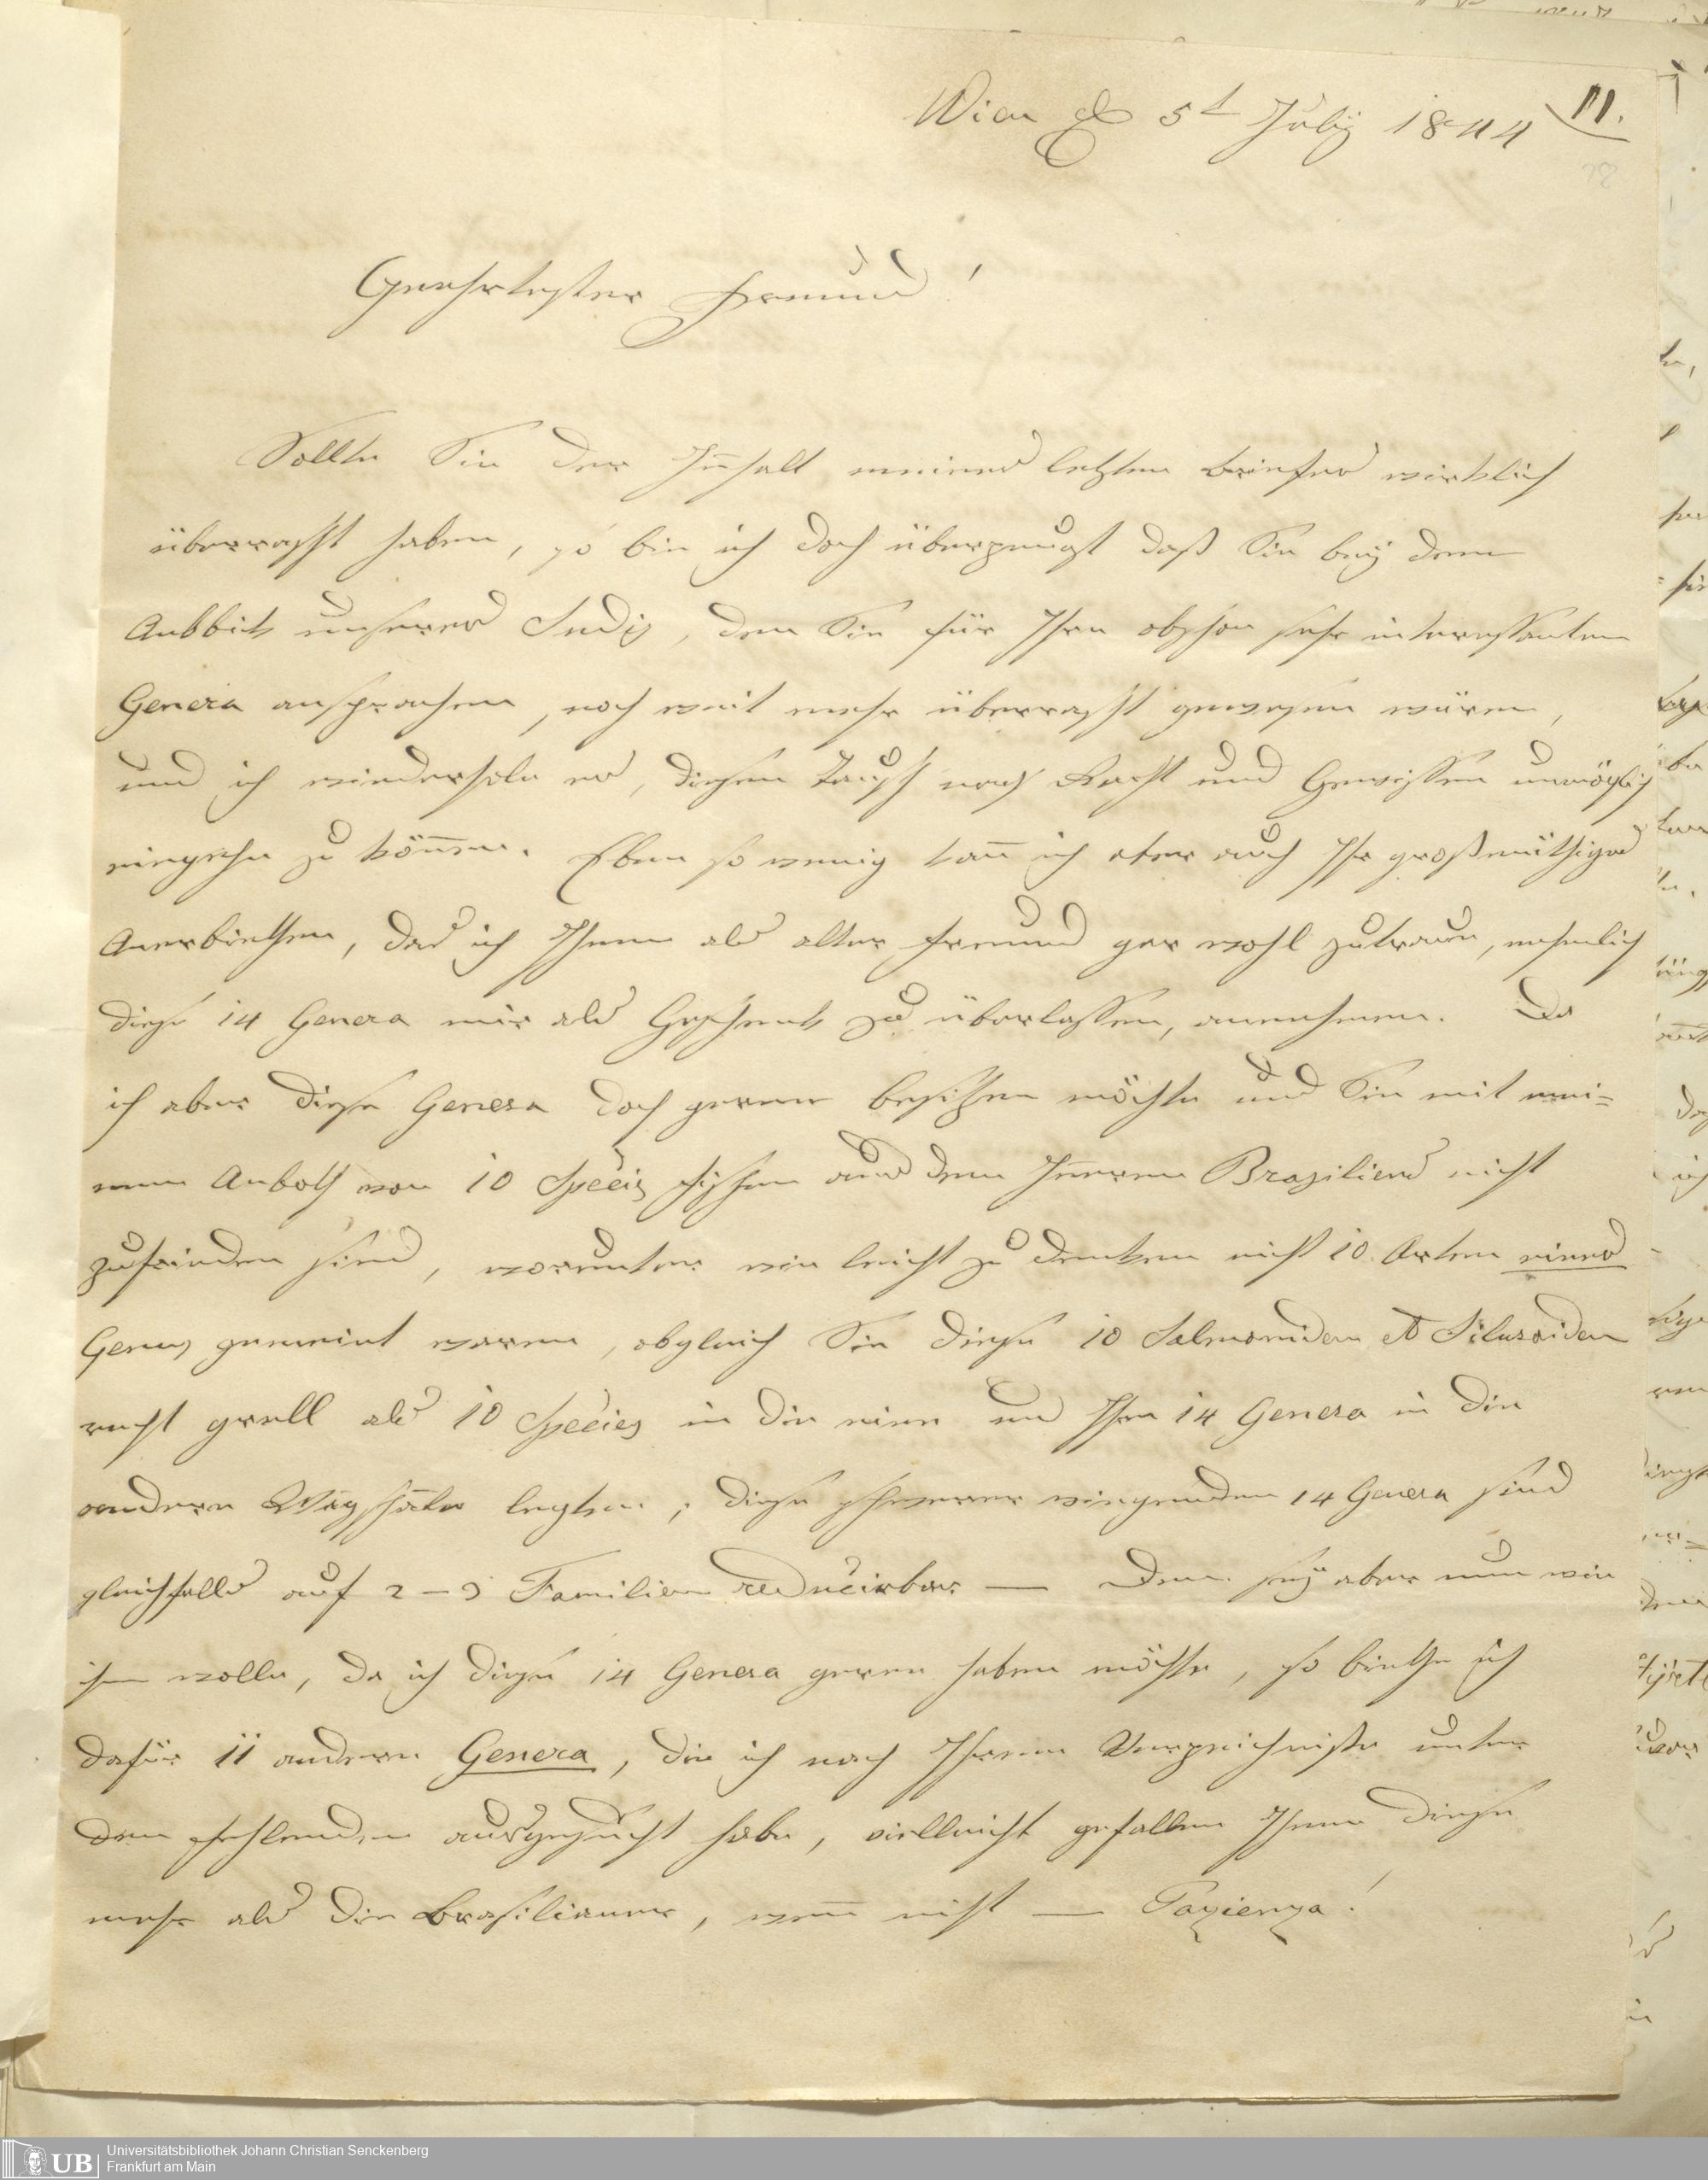 Wien d 5t Julÿ 1844
11.
Geehrtester Freund!
Sollte Sie der Inhalt meines letzten Briefes wirklich
überrascht haben, so bin ich doch überzeugt daß Sie beÿ dem
Anblick unseres, den Sie für Ihre obschon sehr interessanten
Genera ansprachen, noch weit mehr überrascht gewesen wären,
und ich wiederhole es, diesen Tausch nach Recht und Gewissen unmöglich
eingehn zu können. Eben so wenig kann ich aber auch Ihr großmüthiges
Anerbiethen, das ich Ihnen als alter Freund gar wohl zutraue, nehmlich
diese 14 Genera mir als Geschenk zu überlassen, annehmen. Da
ich aber diese Genera doch gerne besitzen möchte und Sie mit mei=
nem Anboth von 10 Species Fischen aus dem Inneren Braziliens nicht
zufrieden sind, worunter wie leicht zu denken nicht 10 Arten eines
Genus gemeint waren, obgleich Sie diese 10 Salmoniden et Siluroiden
recht grell als 10 Species in die eine und Ihre 14 Genera in die
andere Wagschale legten; diese schwerer wiegenden 14 Genera sind
gleichfalls auf 2–3 Familien reducirbar — Dem seÿ aber nun wie
ihm wolle, da ich diese 14 Genera gerne haben möchte, so biethe ich
dafür 11 andere Genera, die ich nach Ihrem Verzeichniße unter
den fehlenden ausgesucht habe, vielleicht gefallen Ihnen diese
mehr als die Brasilianer, wenn nicht — Pazienza!
UB
Universitätsbibliothek Johann Christian Senckenberg
Frankfurt am Main